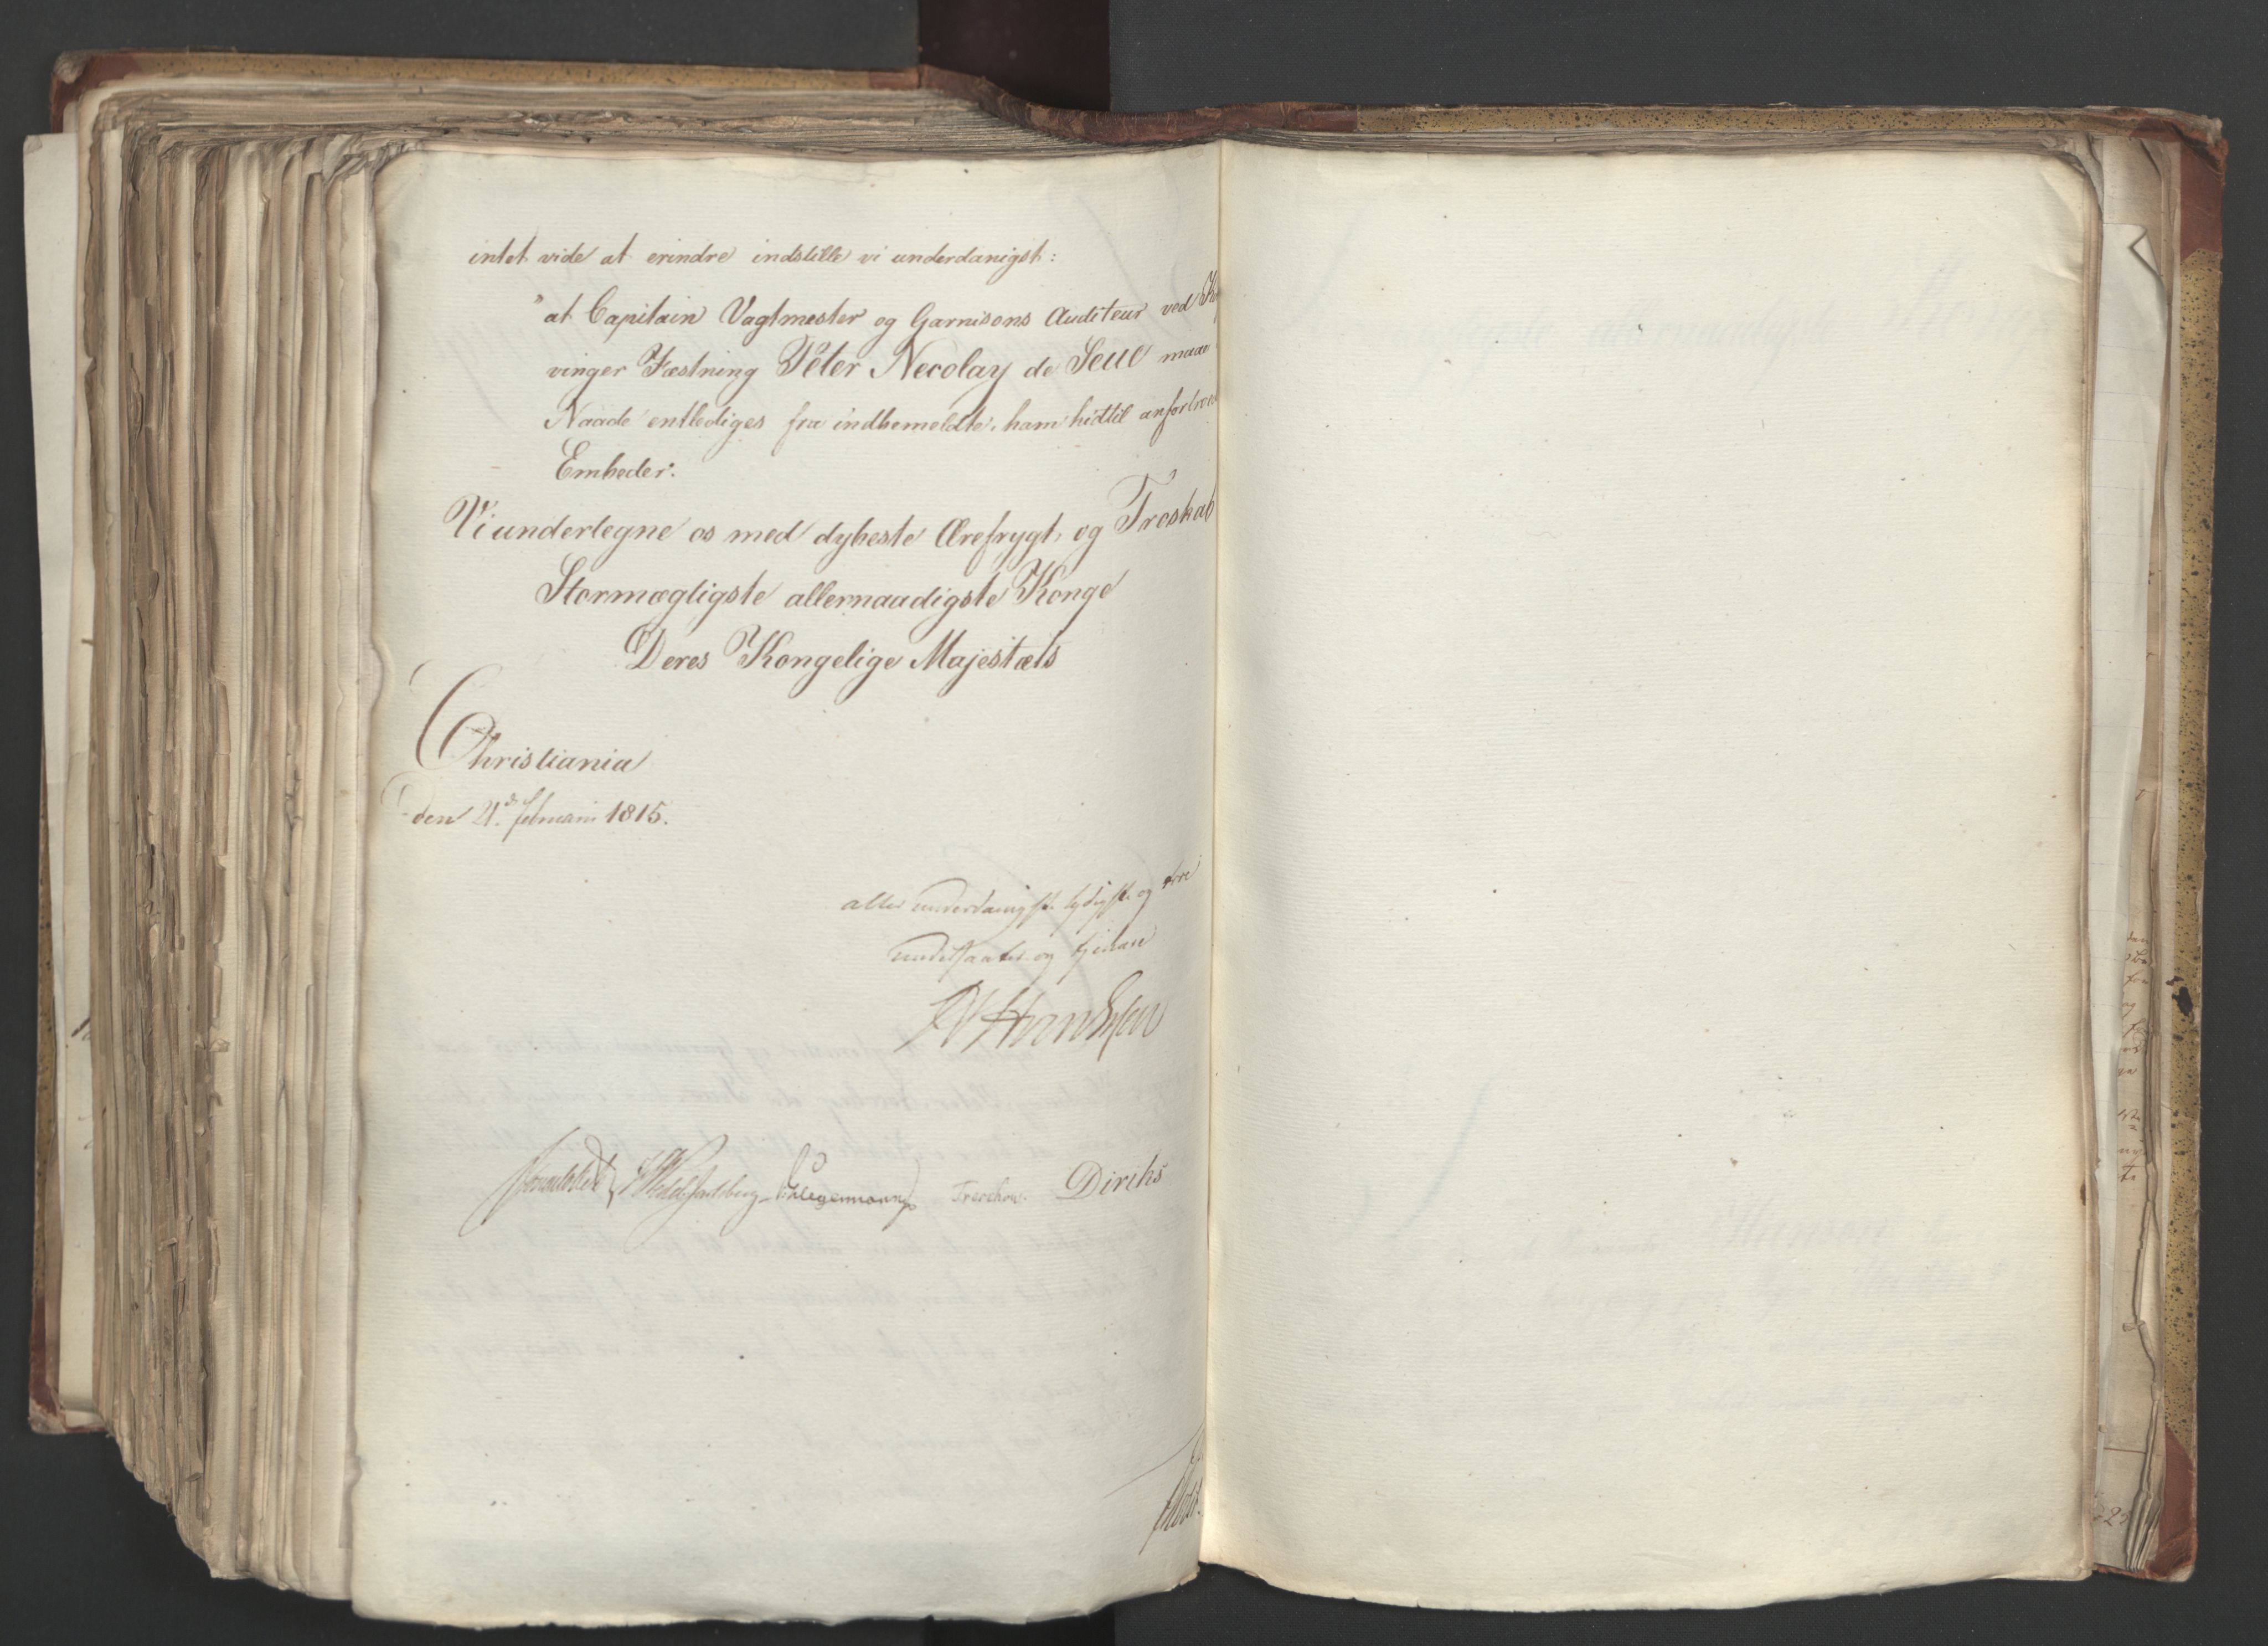 intet vide at erindre indstille vi underdanigst:
"at Capitain Vagtmester og Garnisons Auditeur ved
vinger Fæstning Peter Necolay de Seue maae
Naade entlediges fra indbemeldte, ham hidtil
Embeder.
Vi underlegne os med dybeste Ærefrygt, og Troskab
Stormægtigste allernaadigste Konge
Deres Kongelige Majestæts
Christiania
den 21.de Februarii 1815.
aller underdanigste lydigste og
undersaatter og tjenere
Sommerhielm Wedel Jarlsberg Hegermann Treschow. Dircks